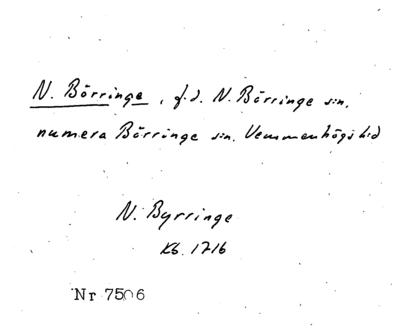 N. Börringe, f.d. N. Börringe sn,
numera Börringe sn. Vemmenhögs hd
N. Byrringe
Kb. 1716
Nr 7506